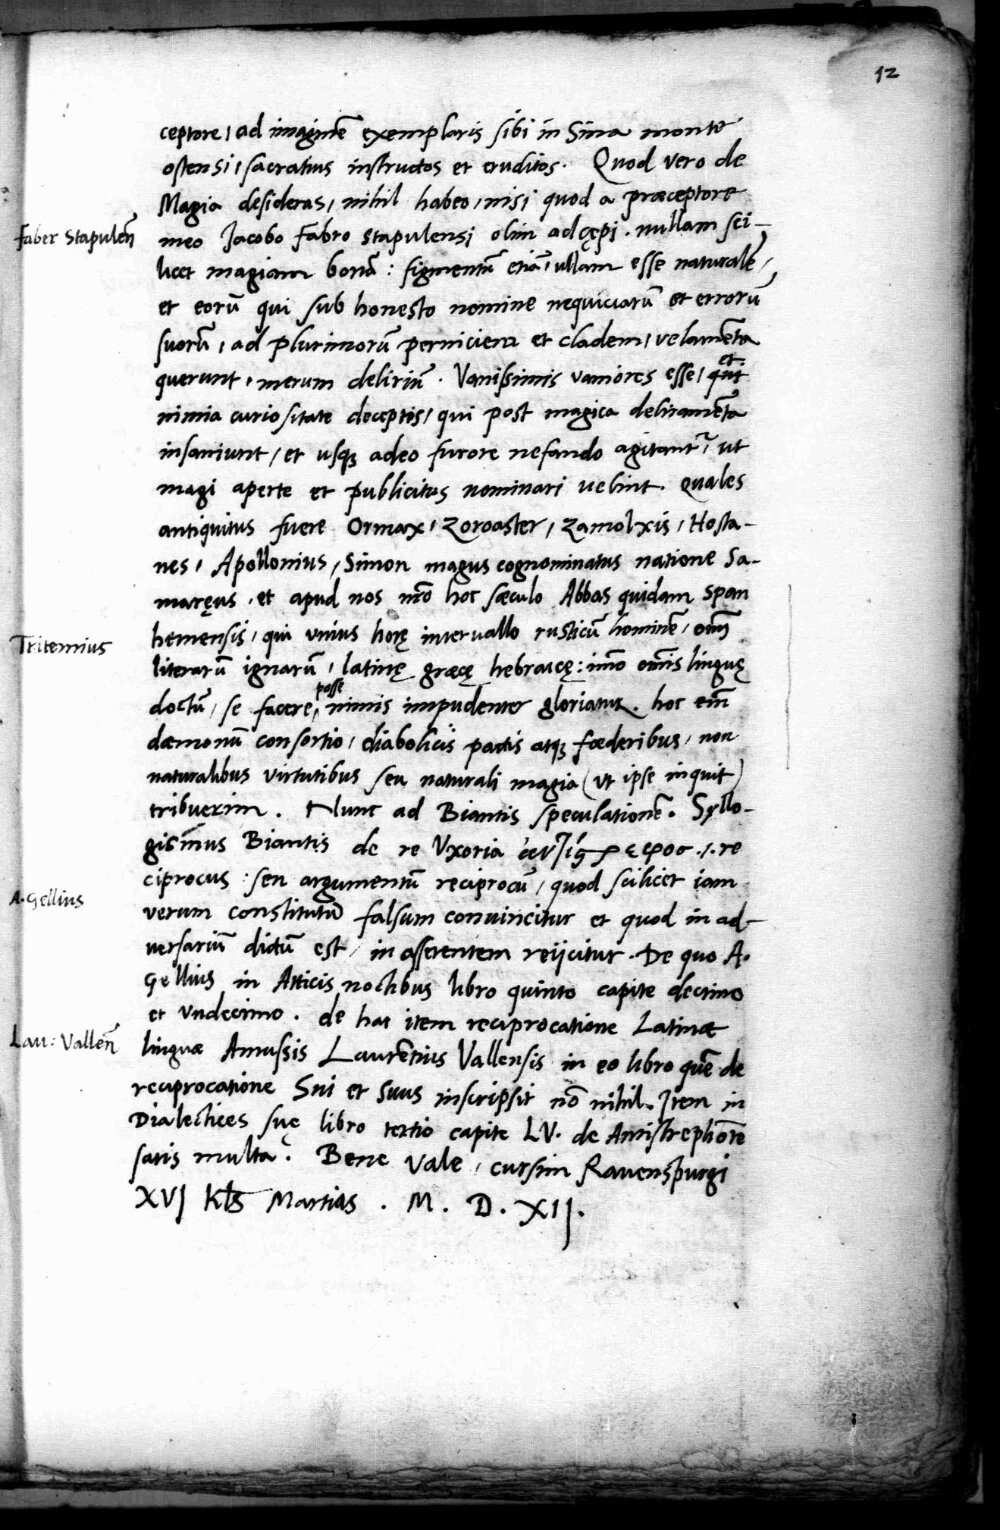 12
ceptore, ad imaginē exemplaris sibi in Sina monte
ostensi, sacratius instructos et eruditos. Quod vero de
Magia desideras, nihil habeo, nisi quod a præceptore
Faber Stapuleñ
meo Jacobo Fabro Stapulensi olim adcępi. nullam sci-
licet magiam bonā: figmentū etiā, ullam esse naturalē,
et eorū qui sub honesto nomine nequiciarū et errorū
suorū, ad plurimorū perniciem et cladem, velamēta
querunt, merum deliriū. Vanissimis vaniores esse, et qui
nimia curiositate deceptis, qui post magica deliramēta
insaniunt, et usqꝫ adeo furore nefando agitant᷑, ut
magi aperte et publicitus nominari velint. Quales
antiquitus fuere Ormax, Zoroaster, Zamolxis, Hosta-
nes, Apollonius, Simon magus cognominatus natione Sa-
maręus, et apud nos nr̄o hoc sæculo Abbas quidam Span
Tritemius
hemensis, qui unius horę intervallo rusticū hominē, om̄
literarū ignarū, latinę græcę hebraicę: im̄o om̄is linguę
doctū, se facere posse, nimis impudenter gloriatur. hoc em̄
dæmonū consortio, diabolicis pactis atqꝫ fœderibus, non
naturalibus virtutibus seu naturali magia (ut ipse inquit)
tribuerim. Nunc ad Biantis speculationē. Syllo-
gismus Biantis de re Uxoria .i. re
ciprocus: seu argumentū reciprocū, quod scilicet iam
A. Gellius
verum constitutū falsum convincitur et quod in ad-
versariū dictū est, in asserentem reijcitur. De quo A.
Gellius in Atticis noctibus libro quinto capite decimo
et undecimo. de hac item reciprocatione Latinæ
Lau: Valleñ
linguæ Amussis Laurētius Vallensis in eo libro quē de
reciprocatione Sui et Suus inscripsit nō nihil. Item in
Dialectices suę libro tertio capite LV. de Antistrephōte
satis multa. Bene Vale, cursim Ravenspurgi
XVI Kls Martias. M. D. XII.